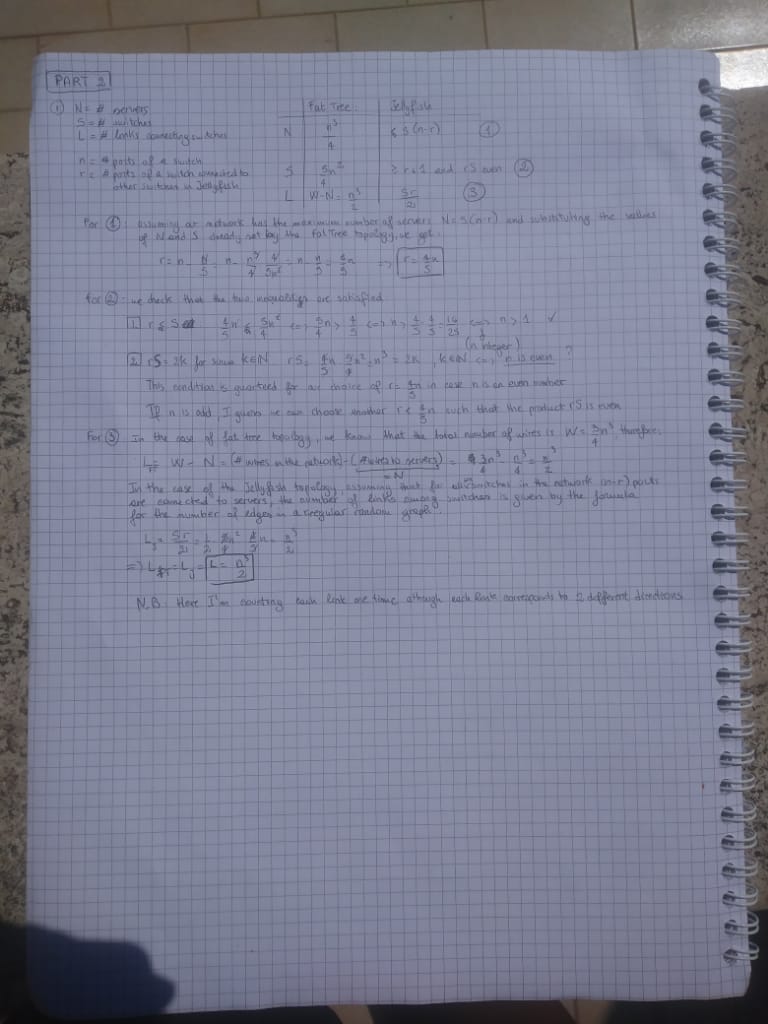 PART 2
① N = # servers
S = # switches
L = # links connecting switches
n = # ports of a switch
r = # ports of a switch connected to
other switches in Jellyfish
Fat Tree: Jellyfish
N n³/4 ≤ S(n-r) ①
S 5n²/4 ≥ r+1 and rS even ②
L W-N = n³/2 Sr/2 ③
For ①: assuming our network has the maximum number of servers N = S(n-r) and substituting the values
of N and S already set by the Fat Tree topology, we get:
r = n - N/S = n - n³/4 · 4/5n² = n - n/5 = 4/5 n => r = 4n/5
For ②: we check that the two inequalities are satisfied
1. r ≤ S
4/5 n ≤ 5n²/4 <=> 5/4 n > 4/5 <=> n > 4/5 · 4/5 = 16/25 <=> n > 1 ✓
(n integer)
2. rS = 2k for some k∈N rS = 4n/5 · 5n²/4 = n³ = 2k, k∈N <=> n is even ?
This condition is guaranteed for our choice of r = 4n/5 in case n is an even number
If n is odd, I guess we can choose another r < 4/5 n such that the product rS is even
For ③ In the case of fat tree topology, we know that the total number of wires is W = 3/4 n³ therefore:
L_FT = W - N = (# wires in the network) - (# wires to servers) = 3n³/4 - n³/4 = n³/2
= N
In the case of the Jellyfish topology, assuming that for all switches in the network (n-r) ports
are connected to servers, the number of links among switches is given by the formula
for the number of edges in a r regular random graph:
L_J = Sr/2 = 1/2 · 5n²/4 · 4/5 n = n³/2
=> L_FT = L_J = L = n³/2
N.B: Here I'm counting each link one time although each link corresponds to 2 different directions